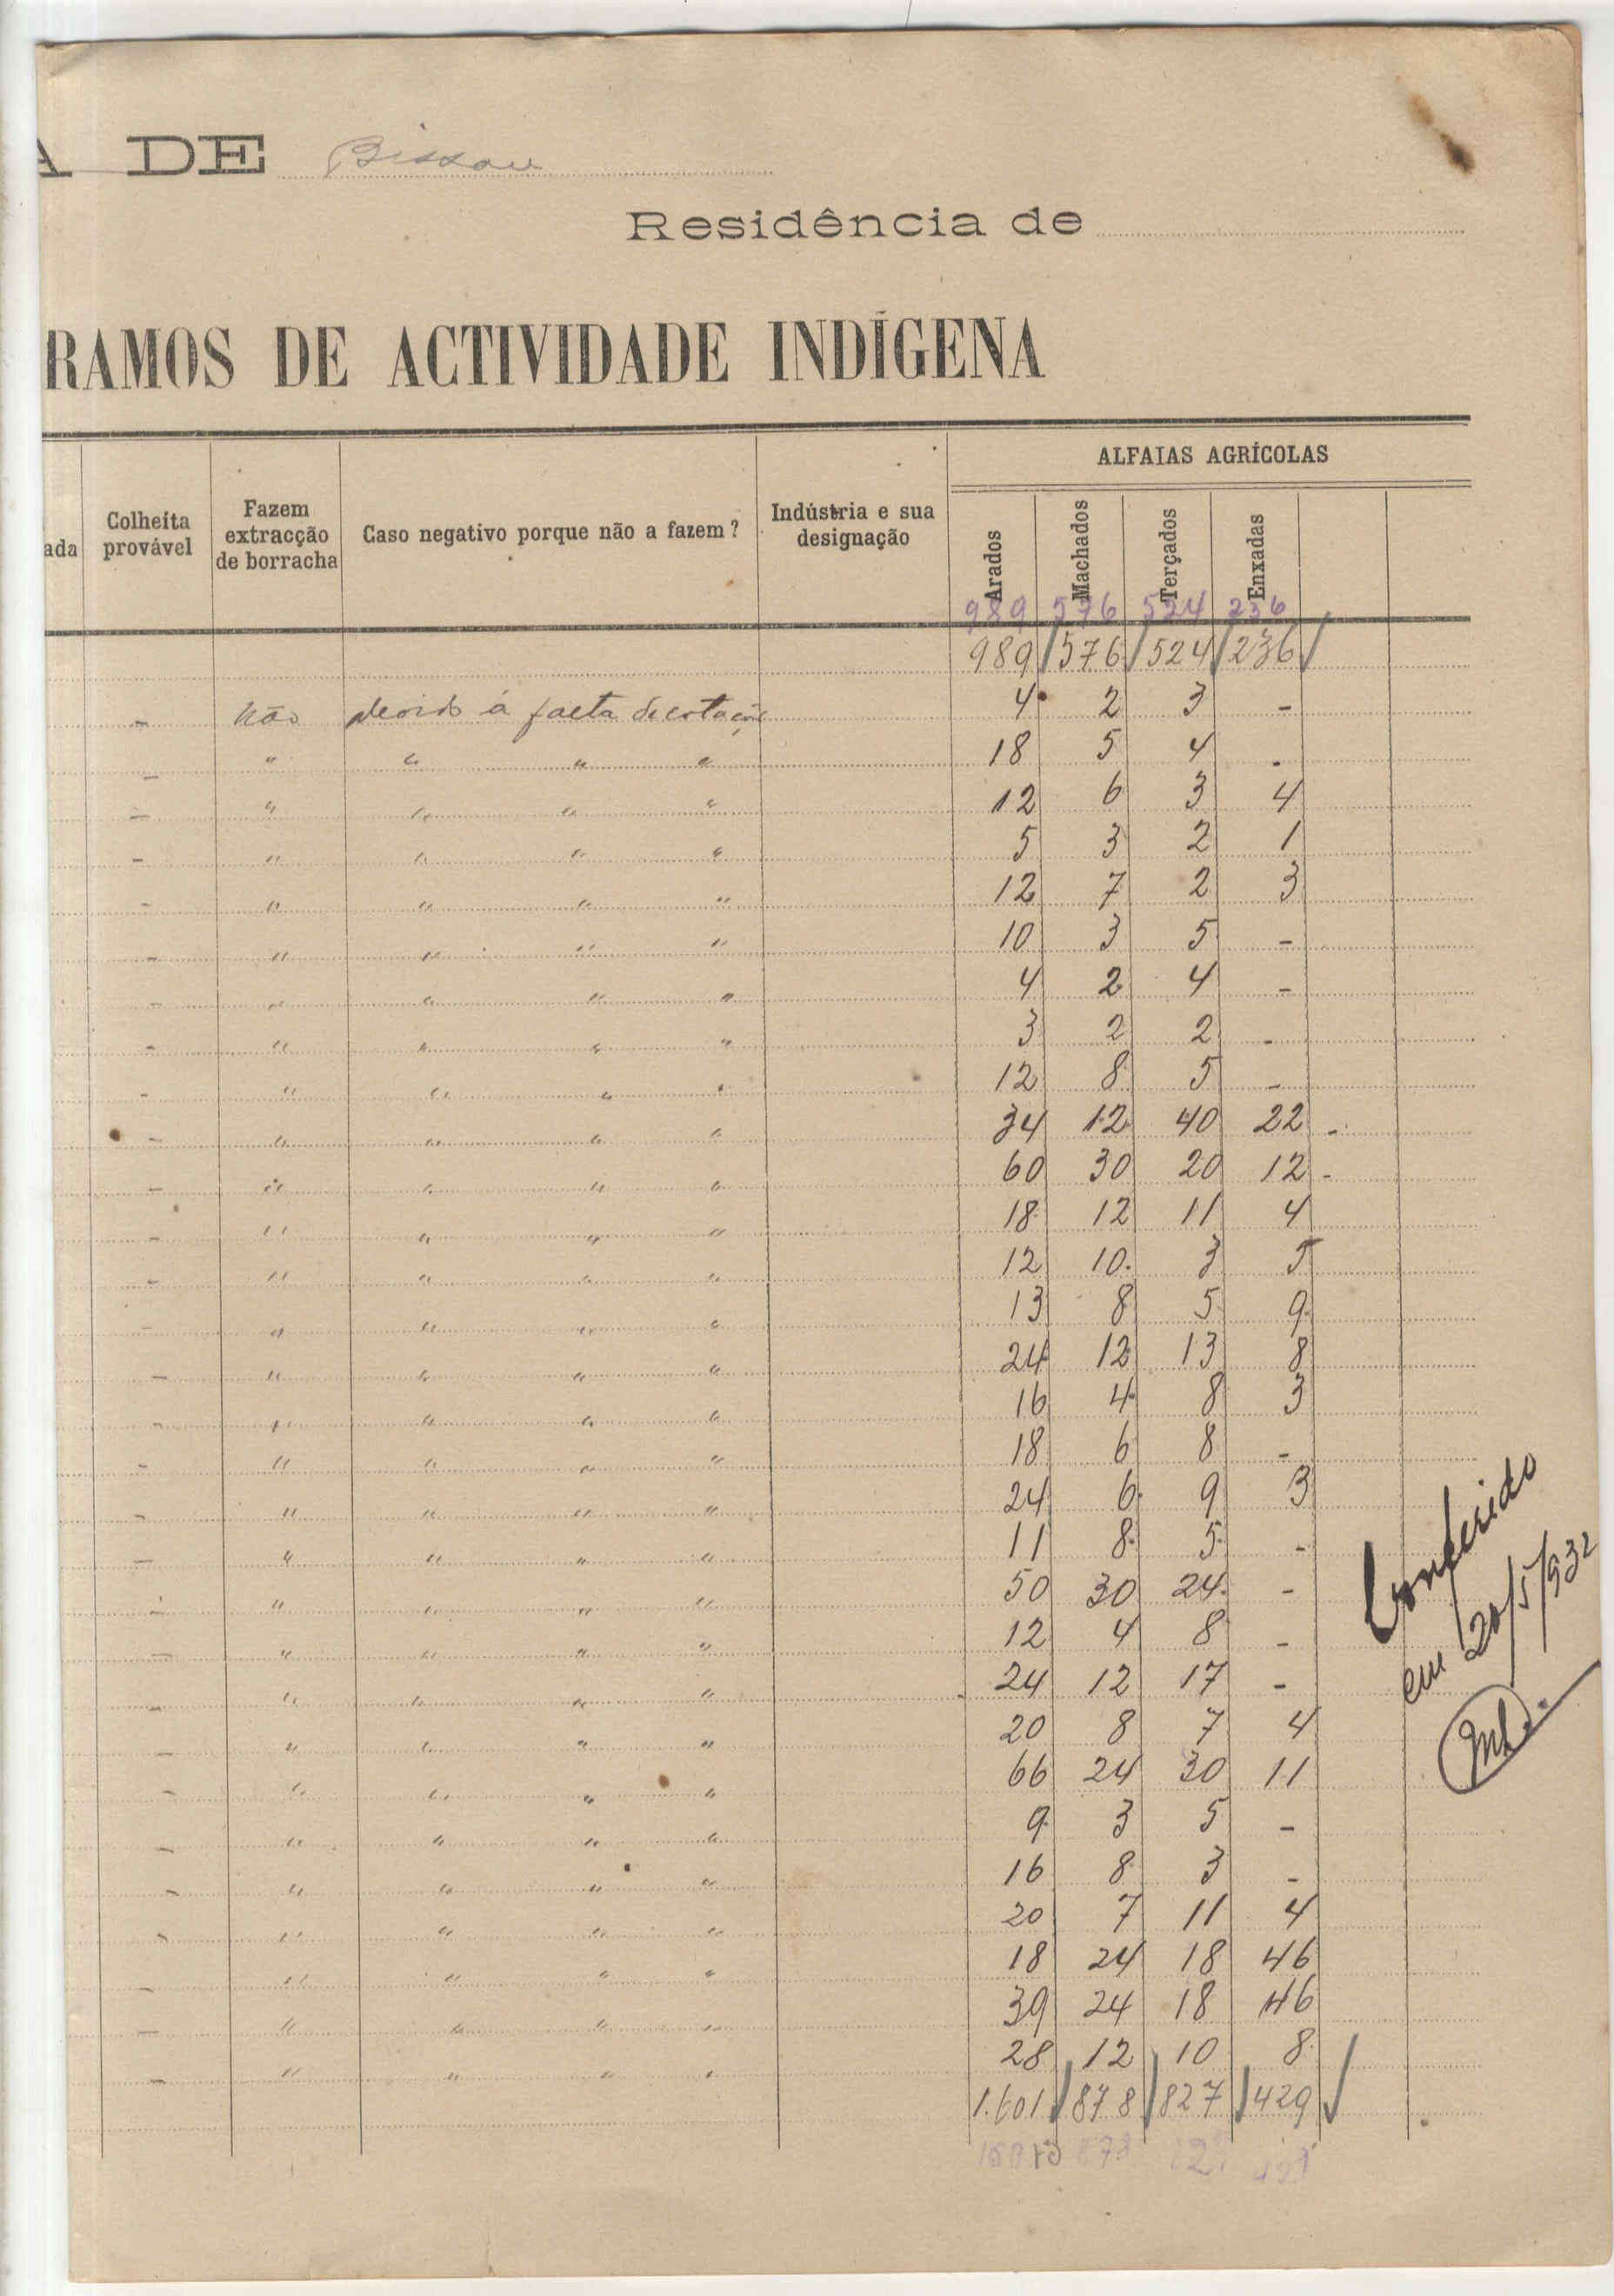 A DE Bissau
Residência de
RAMOS DE ACTIVIDADE INDÍGENA
ada
Colheita provável
Fazem extracção de borracha
Caso negativo porque não a fazem?
Indústria e sua designação
ALFAIAS AGRÍCOLAS
Arados Machados Terçados Enxadas
989 576 524 236
989 576 524 236
- Não devido á falta de cotação 4 2 3 -
- " " " " 18 5 4 -
- " " " " 12 6 3 4
- " " " " 5 3 2 1
- " " " " 12 7 2 3
- " " " " 10 3 5 -
- " " " " 4 2 4 -
- " " " " 3 2 2 -
- " " " " 12 8 5 -
- " " " " 34 12 40 22 -
- " " " " 60 30 20 12 -
- " " " " 18 12 11 4
- " " " " 12 10 3 5
- " " " " 13 8 5 9
- " " " " 24 12 13 8
- " " " " 16 4 8 3
- " " " " 18 6 8 -
- " " " " 24 6 9 3
- " " " " 11 8 5 -
- " " " " 50 30 24 -
- " " " " 12 4 8 -
- " " " " 24 12 17 -
- " " " " 20 8 7 4
- " " " " 66 24 30 11
- " " " " 9 3 5 -
- " " " " 16 8 3 -
- " " " " 20 7 11 4
- " " " " 18 24 18 46
- " " " " 39 24 18 46
- " " " " 28 12 10 8
1.601 878 827 429
Conferido
em 20/5/932